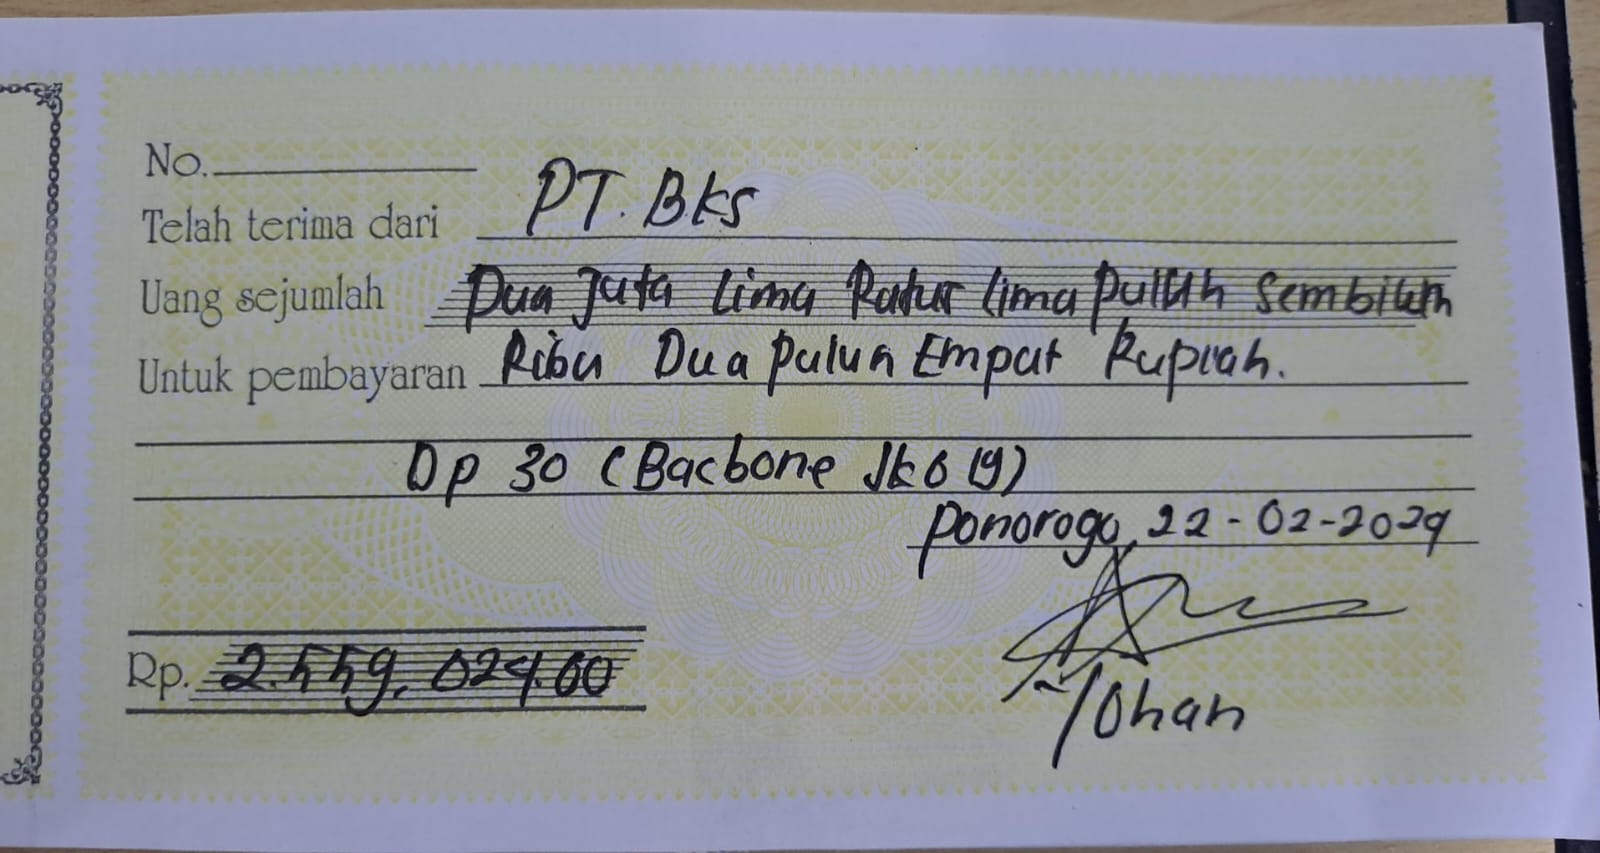 No.
Telah terima dari PT. BKS
Uang sejumlah Dua Juta Lima Ratus Lima Puluh Sembilan
Untuk pembayaran Ribu Dua Puluh Empat Rupiah.
Dp 30 (Bacbone
Ponorogo, 22-02-2024
Rp. 2.559.024.00
Yohan